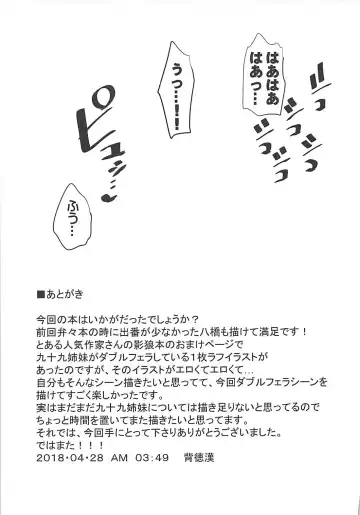 はあはあ
はあっ…
ジュブジュブ
うっ…!!
ピュッ…
ふぅ…
■あとがき
今回の本はいかがだったでしょうか?
前回弁々本の時に出番が少なかった八橋も描けて満足です!
とある人気作家さんの影狼本のおまけページで
九十九姉妹がダブルフェラしている1枚ラフイラストが
あったのですが、そのイラストがエロくてエロくて…
自分もそんなシーン描きたいと思ってて、今回ダブルフェラシーンを
描けてすごく楽しかったです。
実はまだまだ九十九姉妹については描き足りないと思ってるので
ちょっと時間を置いてまた描きたいと思ってます。
それでは、今回手にとって下さりありがとうございました。
ではまた!!!
2018・04・28 AM 03:49 背徳漢